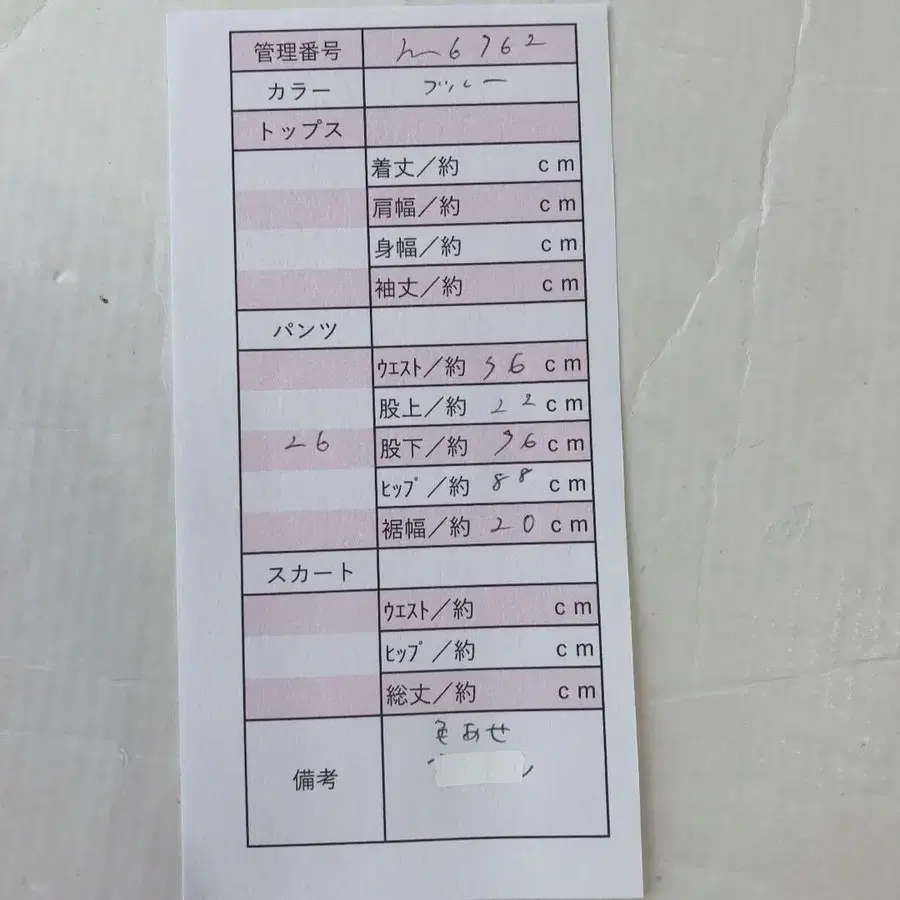 管理番号 m6762
カラー ブルー
トップス
着丈／約 cm
肩幅／約 cm
身幅／約 cm
袖丈／約 cm
パンツ
ｳｴｽﾄ／約 cm
股上／約 22 cm
26 股下／約 cm
ﾋｯﾌﾟ／約 88 cm
裾幅／約 20 cm
スカート
ｳｴｽﾄ／約 cm
ﾋｯﾌﾟ／約 cm
総丈／約 cm
備考 色あせ